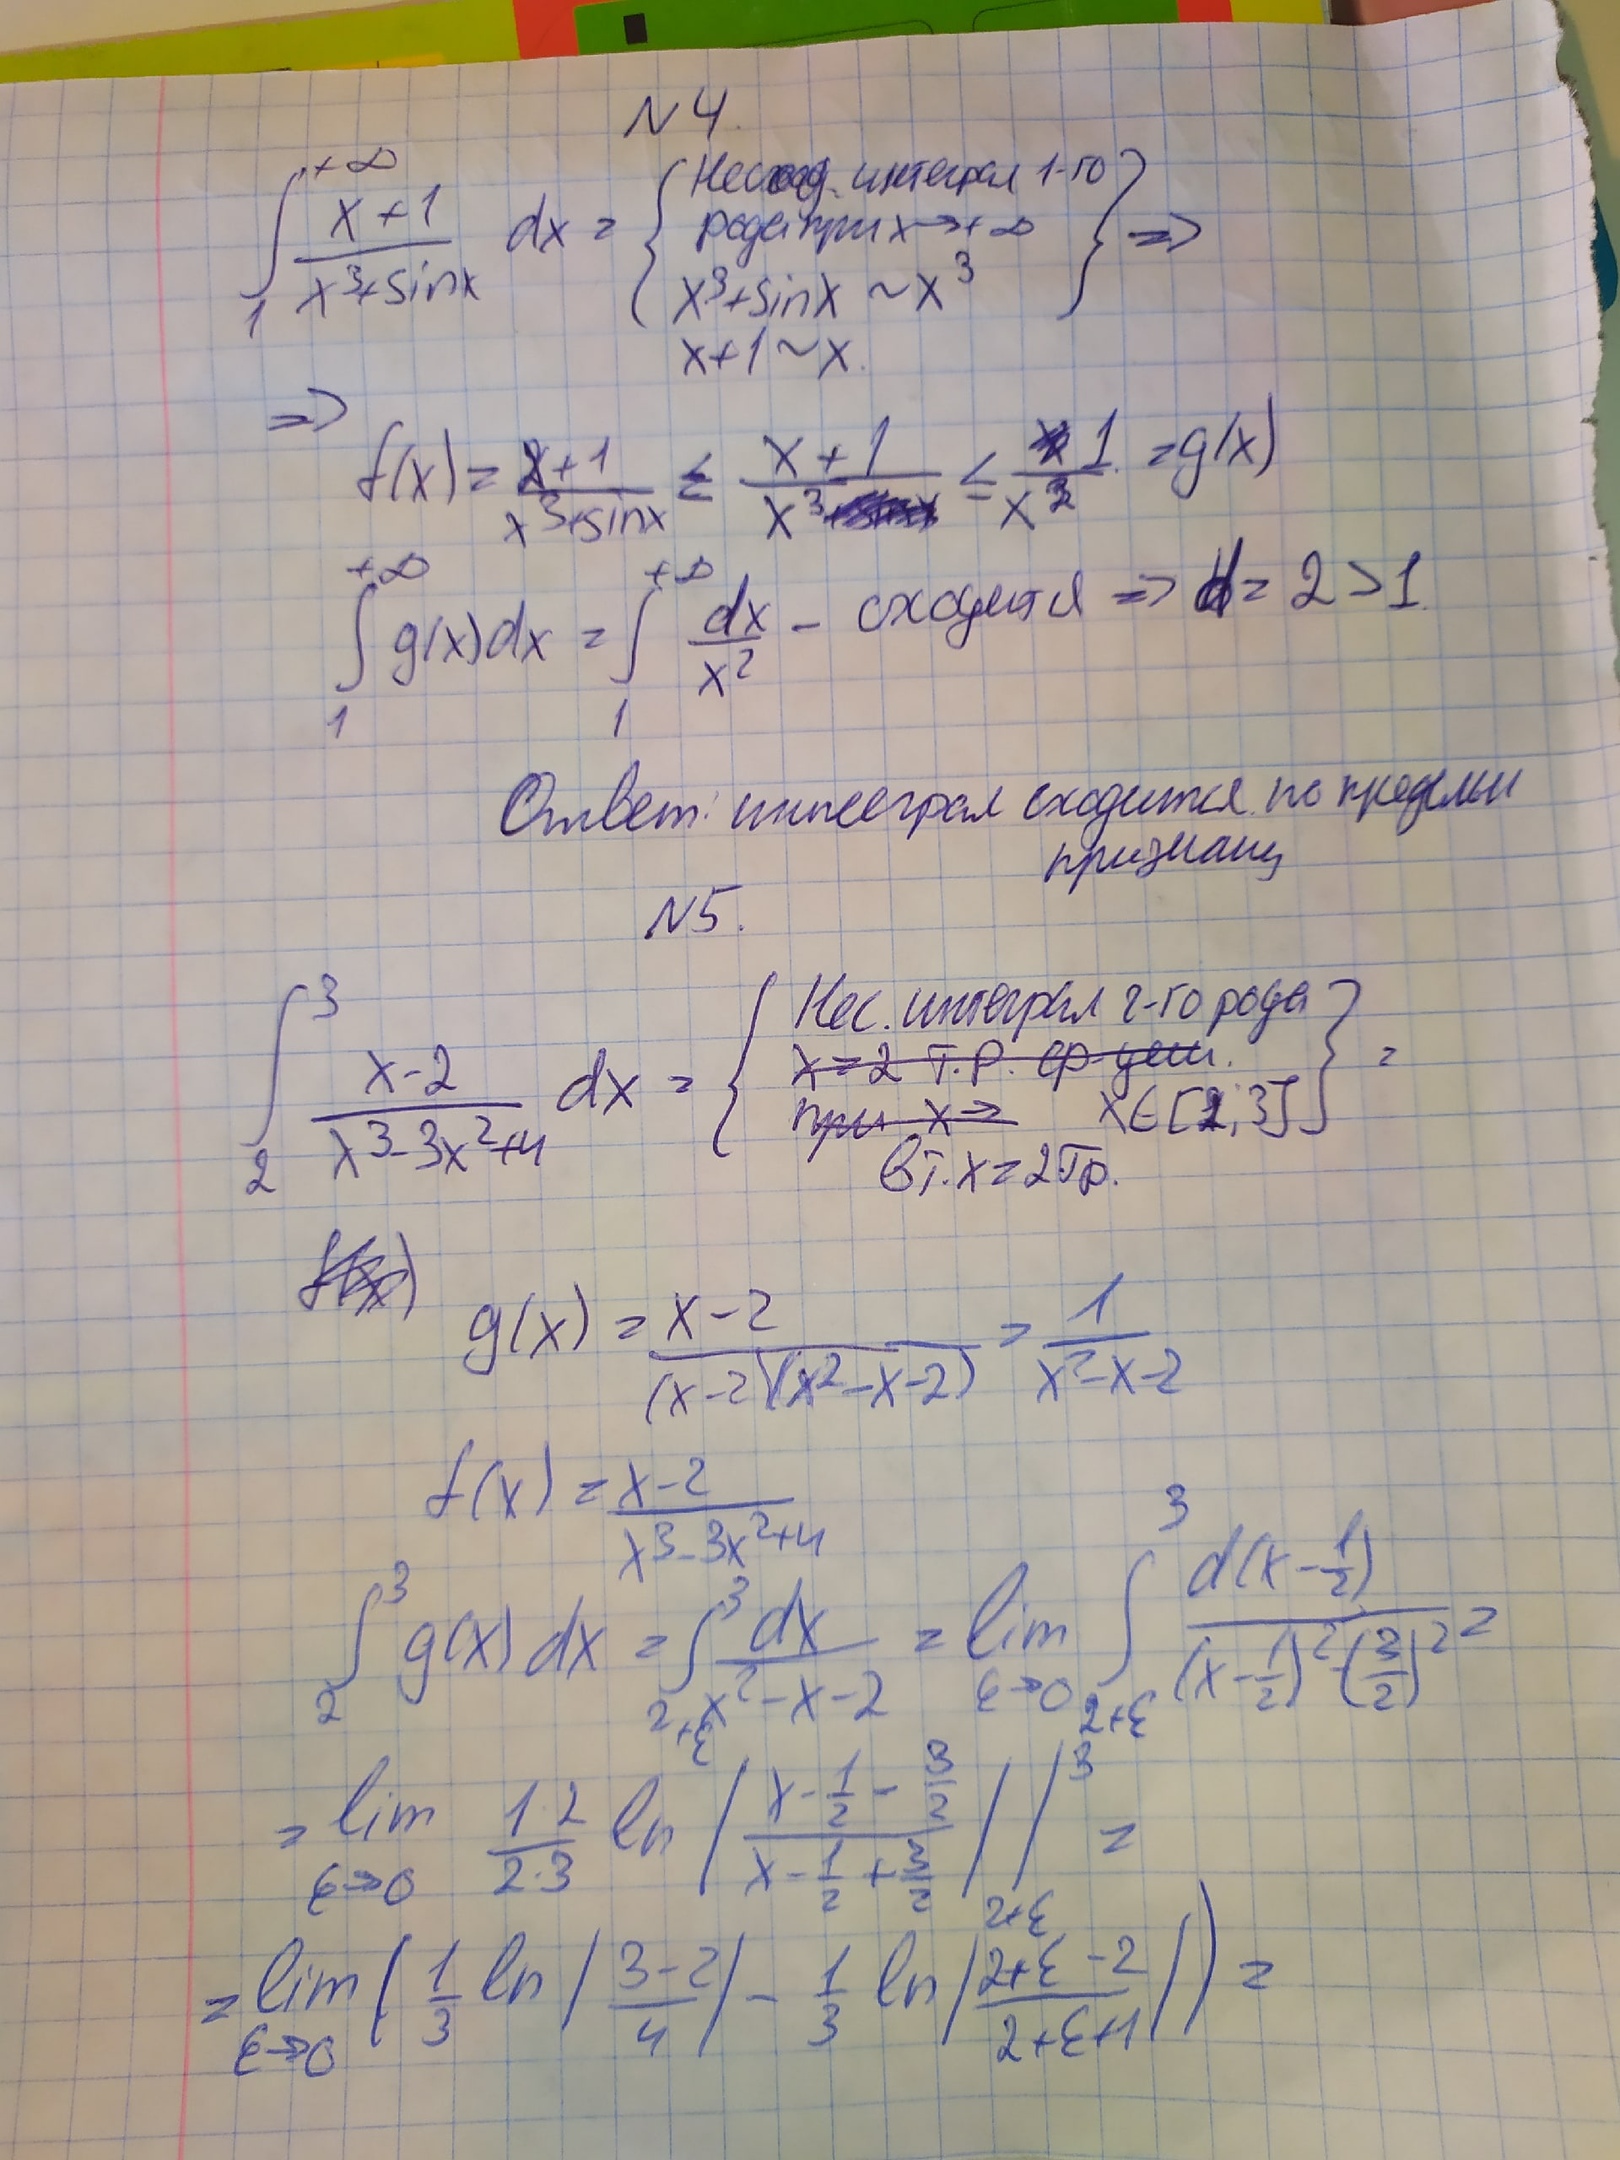 N4.
∫₁^{+∞} (x+1)/(x³+sinx) dx = { Несоб. интеграл 1-го
рода при x→+∞
x³+sinx ~ x³ } =>
x+1 ~ x.
=> f(x) = (x+1)/(x³+sinx) ≤ (x+1)/x³ ≤ 1/x² = g(x)
∫₁^{+∞} g(x)dx = ∫₁^{+∞} dx/x² – сходится => d = 2 > 1.
Ответ: интеграл сходится по предельн
признаку
N5.
∫₂³ (x-2)/(x³-3x²+4) dx = { Нес. интеграл 2-го рода
x=2 т.р.
при x→ x∈[2;3] } =
в т. x=2 Тр.
f(x)
g(x) = (x-2)/((x-2)(x²-x-2)) = 1/(x²-x-2)
f(x) = (x-2)/(x³-3x²+4)
∫₂³ g(x)dx = ∫_{2+ε}³ dx/(x²-x-2) = lim_{ε→0} ∫_{2+ε}³ d(x-1/2)/((x-1/2)²-(3/2)²) =
= lim_{ε→0} (1·2)/(2·3) ln|(x-1/2-3/2)/(x-1/2+3/2)| |_{2+ε}³ =
= lim_{ε→0} (1/3 ln|(3-2)/4| - 1/3 ln|(2+ε-2)/(2+ε+1)|) =